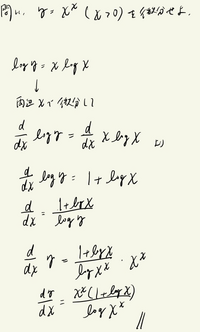 問い. y = x^x (x>0) を微分せよ.
log y = x log x
↓
両辺 x で微分して
d/dx log y = d/dx x log x
d/dx log y = 1 + log x
d/dx = (1+log x)/(log y)
d/dx y = (1+log x)/(log x^x) · x^x
dy/dx = x^x(1+log x)/(log x^x) //